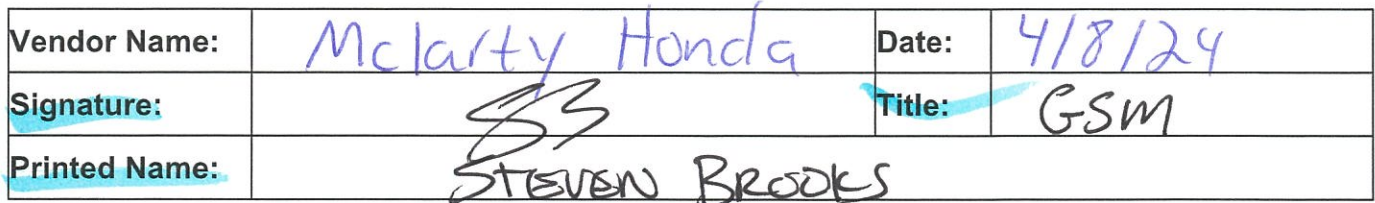 Vendor Name: Mclarty Honda Date: 4/8/24
Signature: Title: GSM
Printed Name: STEVEN BROOKS